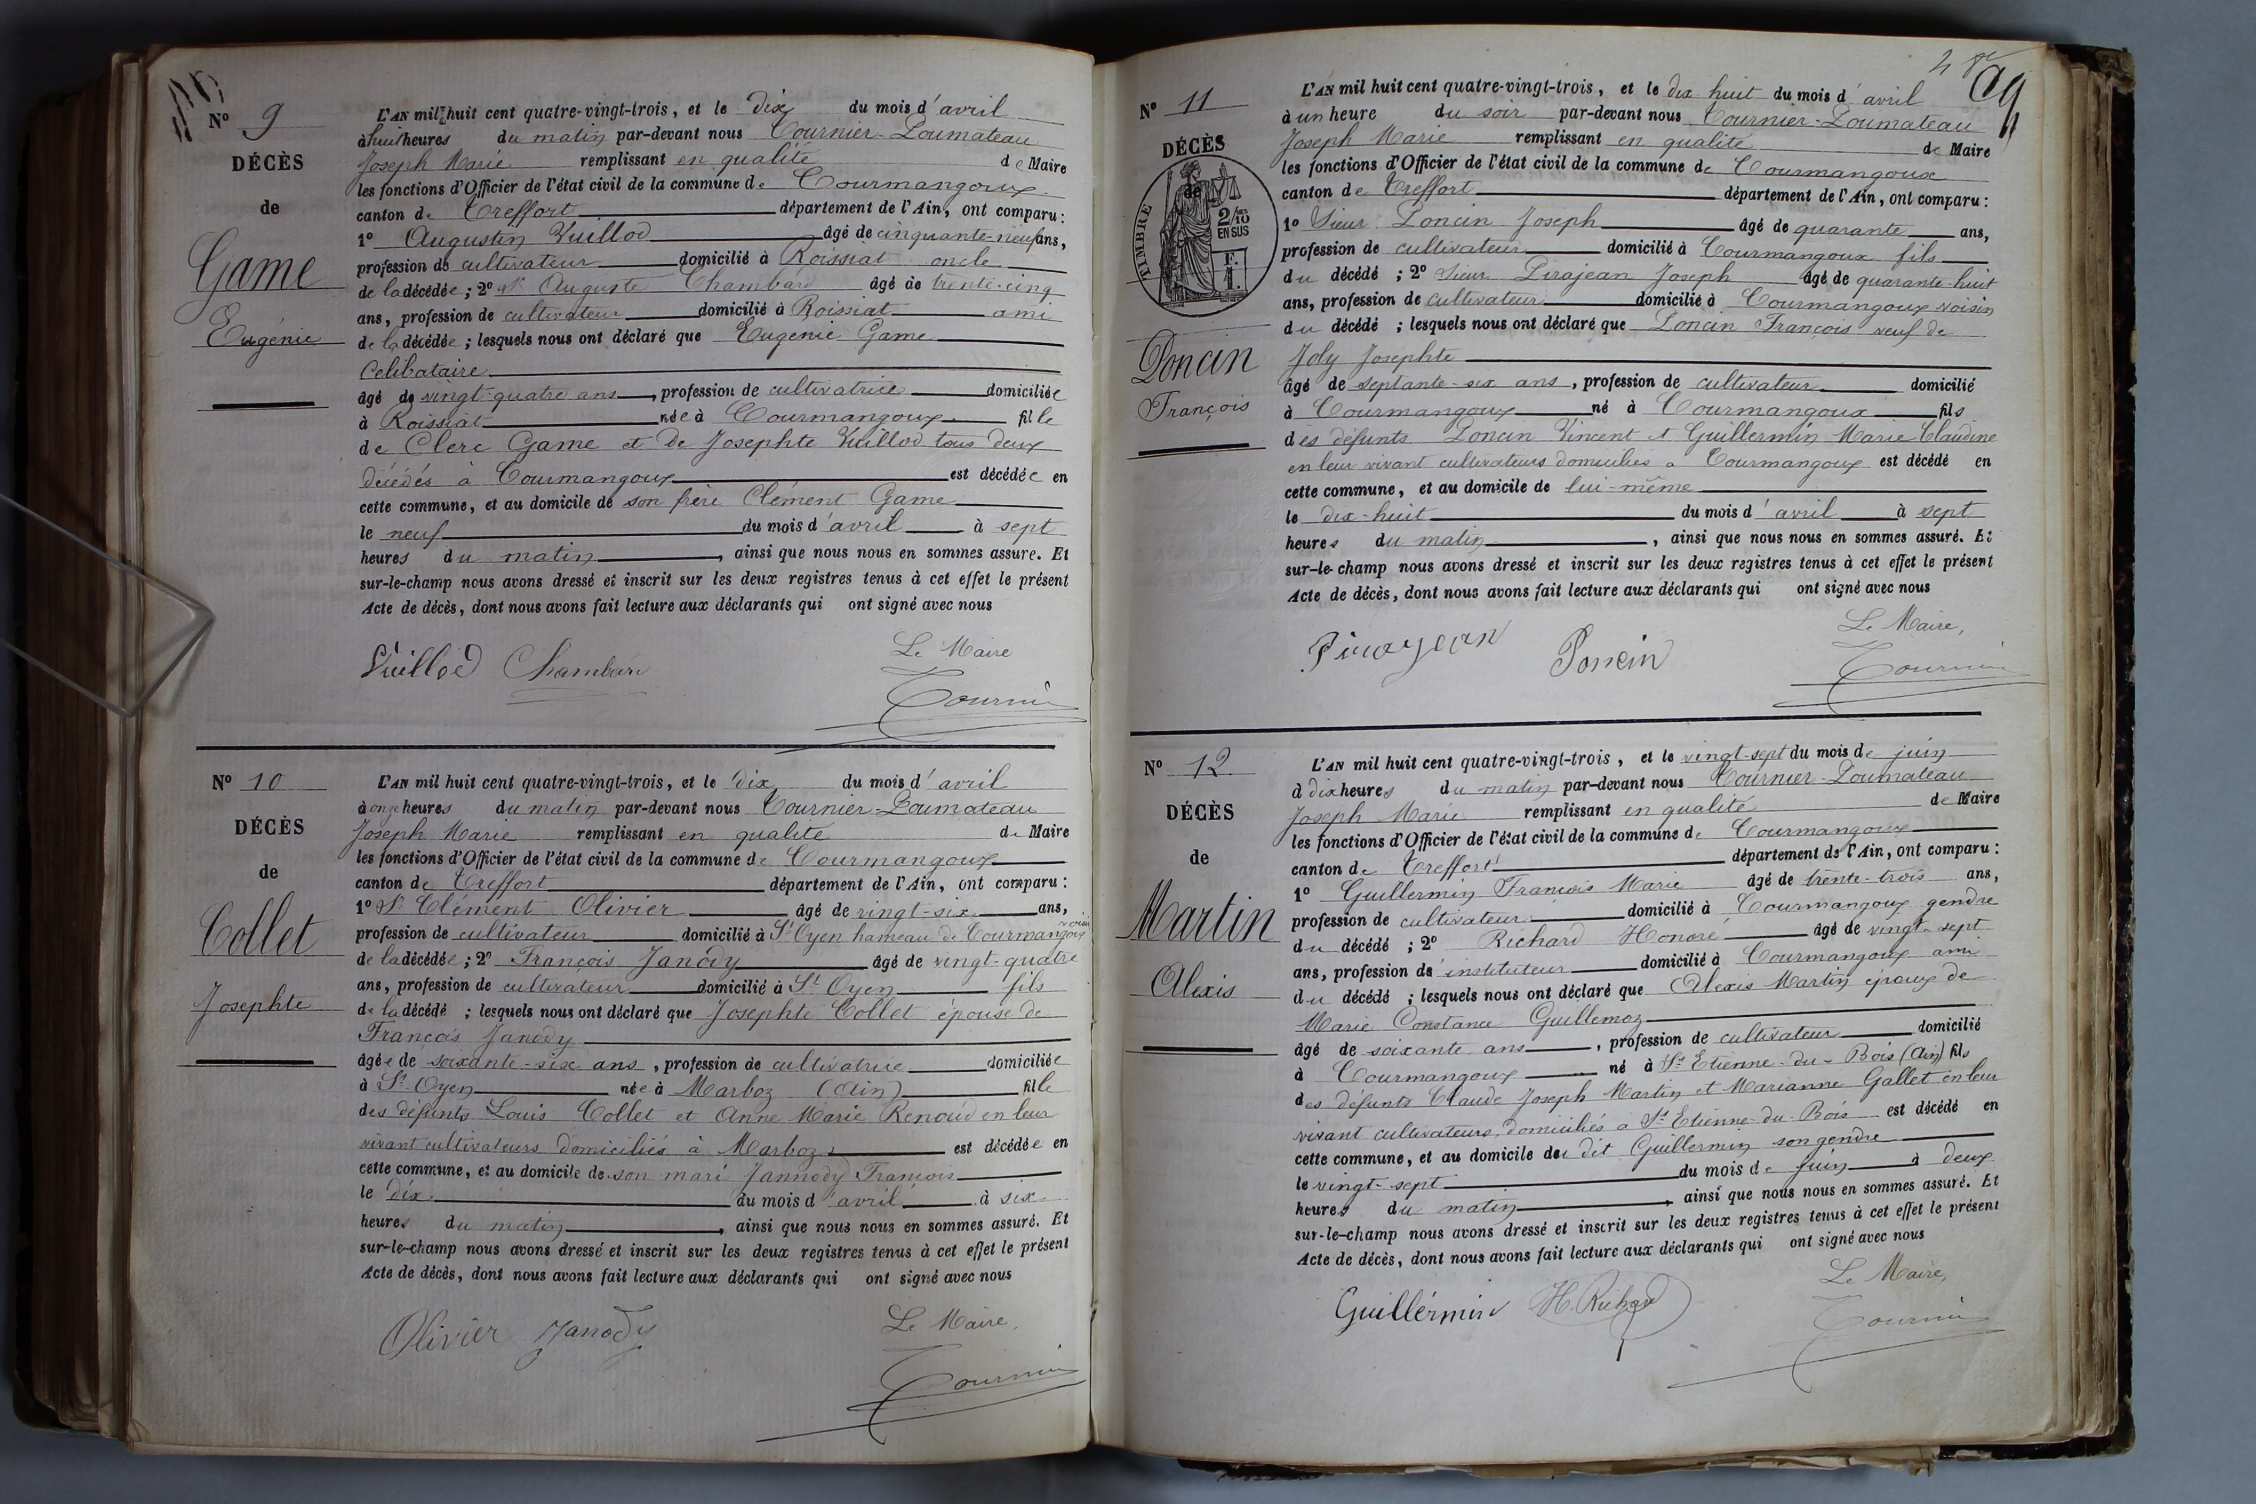 N° 9
DÉCÈS
de
Game
Eugénie
L'AN mil huit cent quatre-vingt-trois, et le dix du mois d'avril
à huit heures du matin par-devant nous Tournier-Loumateau
Joseph Marie remplissant en qualité de Maire
les fonctions d'Officier de l'état civil de la commune de Courmangoux
canton de Treffort département de l'Ain, ont comparu :
1° Augustin Vuillod âgé de cinquante-neuf ans,
profession de cultivateur domicilié à Roissiat oncle
de la décédée ; 2° Auguste Chambard âgé de trente-cinq
ans, profession de cultivateur domicilié à Roissiat ami
de la décédée ; lesquels nous ont déclaré que Eugénie Game
Celibataire
âgé de vingt-quatre ans, profession de cultivatrice domiciliée
à Roissiat née à Courmangoux fille
de Clerc Game et de Josephte Vuillod tous deux
décédés à Courmangoux est décédée en
cette commune, et au domicile de son frère Clément Game
le neuf du mois d'avril à sept
heures du matin, ainsi que nous nous en sommes assuré. Et
sur-le-champ nous avons dressé et inscrit sur les deux registres tenus à cet effet le présent
Acte de décès, dont nous avons fait lecture aux déclarants qui ont signé avec nous
Le Maire
Vuillod Chambard Tournier
N° 10
DÉCÈS
de
Collet
Josephte
L'AN mil huit cent quatre-vingt-trois, et le dix du mois d'avril
à onze heures du matin par-devant nous Tournier-Loumateau
Joseph Marie remplissant en qualité de Maire
les fonctions d'Officier de l'état civil de la commune de Courmangoux
canton de Treffort département de l'Ain, ont comparu :
1° Sr Clément Olivier âgé de vingt-six ans,
profession de cultivateur domicilié à St Oyen hameau de Courmangoux voisin
de la décédée ; 2° François Janody âgé de vingt-quatre
ans, profession de cultivateur domicilié à St Oyen fils
de la décédé ; lesquels nous ont déclaré que Josephte Collet épouse de
François Janody
âgée de soixante-six ans, profession de cultivatrice domiciliée
à St Oyen née à Marboz (Ain) fille
des défunts Louis Collet et Anne Marie Renoud en leur
vivant cultivateurs domiciliés à Marboz est décédée en
cette commune, et au domicile de son mari Jannody François
le dix du mois d'avril à six
heures du matin, ainsi que nous nous en sommes assuré. Et
sur-le-champ nous avons dressé et inscrit sur les deux registres tenus à cet effet le présent
Acte de décès, dont nous avons fait lecture aux déclarants qui ont signé avec nous
Le Maire,
Olivier Janody Tournier
N° 11
DÉCÈS
de
TIMBRE
2/10
EN SUS
F.
1.
Poncin
François
L'AN mil huit cent quatre-vingt-trois, et le dix huit du mois d'avril
à un heure du soir par-devant nous Tournier-Loumateau
Joseph Marie remplissant en qualité de Maire
les fonctions d'Officier de l'état civil de la commune de Courmangoux
canton de Treffort département de l'Ain, ont comparu :
1° Sieur Poncin Joseph âgé de quarante ans,
profession de cultivateur domicilié à Courmangoux fils
du décédé ; 2° sieur Pirajean Joseph âgé de quarante-huit
ans, profession de cultivateur domicilié à Courmangoux voisin
du décédé ; lesquels nous ont déclaré que Poncin François veuf de
Joly Josephte
âgé de septante-six ans, profession de cultivateur domicilié
à Courmangoux né à Courmangoux fils
des défunts Poncin Vincent et Guillermin Marie Claudine
en leur vivant cultivateurs domiciliés à Courmangoux est décédé en
cette commune, et au domicile de lui-même
le dix-huit du mois d'avril à sept
heures du matin, ainsi que nous nous en sommes assuré. Et
sur-le-champ nous avons dressé et inscrit sur les deux registres tenus à cet effet le présent
Acte de décès, dont nous avons fait lecture aux déclarants qui ont signé avec nous
Le Maire,
Pirajean Poncin Tournier
N° 12
DÉCÈS
de
Martin
Alexis
L'AN mil huit cent quatre-vingt-trois, et le vingt-sept du mois de juin
à dix heures du matin par-devant nous Tournier-Loumateau
Joseph Marie remplissant en qualité de Maire
les fonctions d'Officier de l'état civil de la commune de Courmangoux
canton de Treffort département de l'Ain, ont comparu :
1° Guillermin François Marie âgé de trente-trois ans,
profession de cultivateur domicilié à Courmangoux gendre
du décédé ; 2° Richard Honoré âgé de vingt-sept
ans, profession de instituteur domicilié à Courmangoux ami
du décédé ; lesquels nous ont déclaré que Alexis Martin époux de
Marie Constance Guillemoz
âgé de soixante ans, profession de cultivateur domicilié
à Courmangoux né à St Etienne-du-Bois (Ain) fils
des défunts Claude Joseph Martin et Marianne Gallet en leur
vivant cultivateurs, domiciliés à St Etienne-du-Bois est décédé en
cette commune, et au domicile du dit Guillermin son gendre
le vingt-sept du mois de juin à deux
heures du matin, ainsi que nous nous en sommes assuré. Et
sur-le-champ nous avons dressé et inscrit sur les deux registres tenus à cet effet le présent
Acte de décès, dont nous avons fait lecture aux déclarants qui ont signé avec nous
Le Maire,
Guillérmin H. Richard Tournier